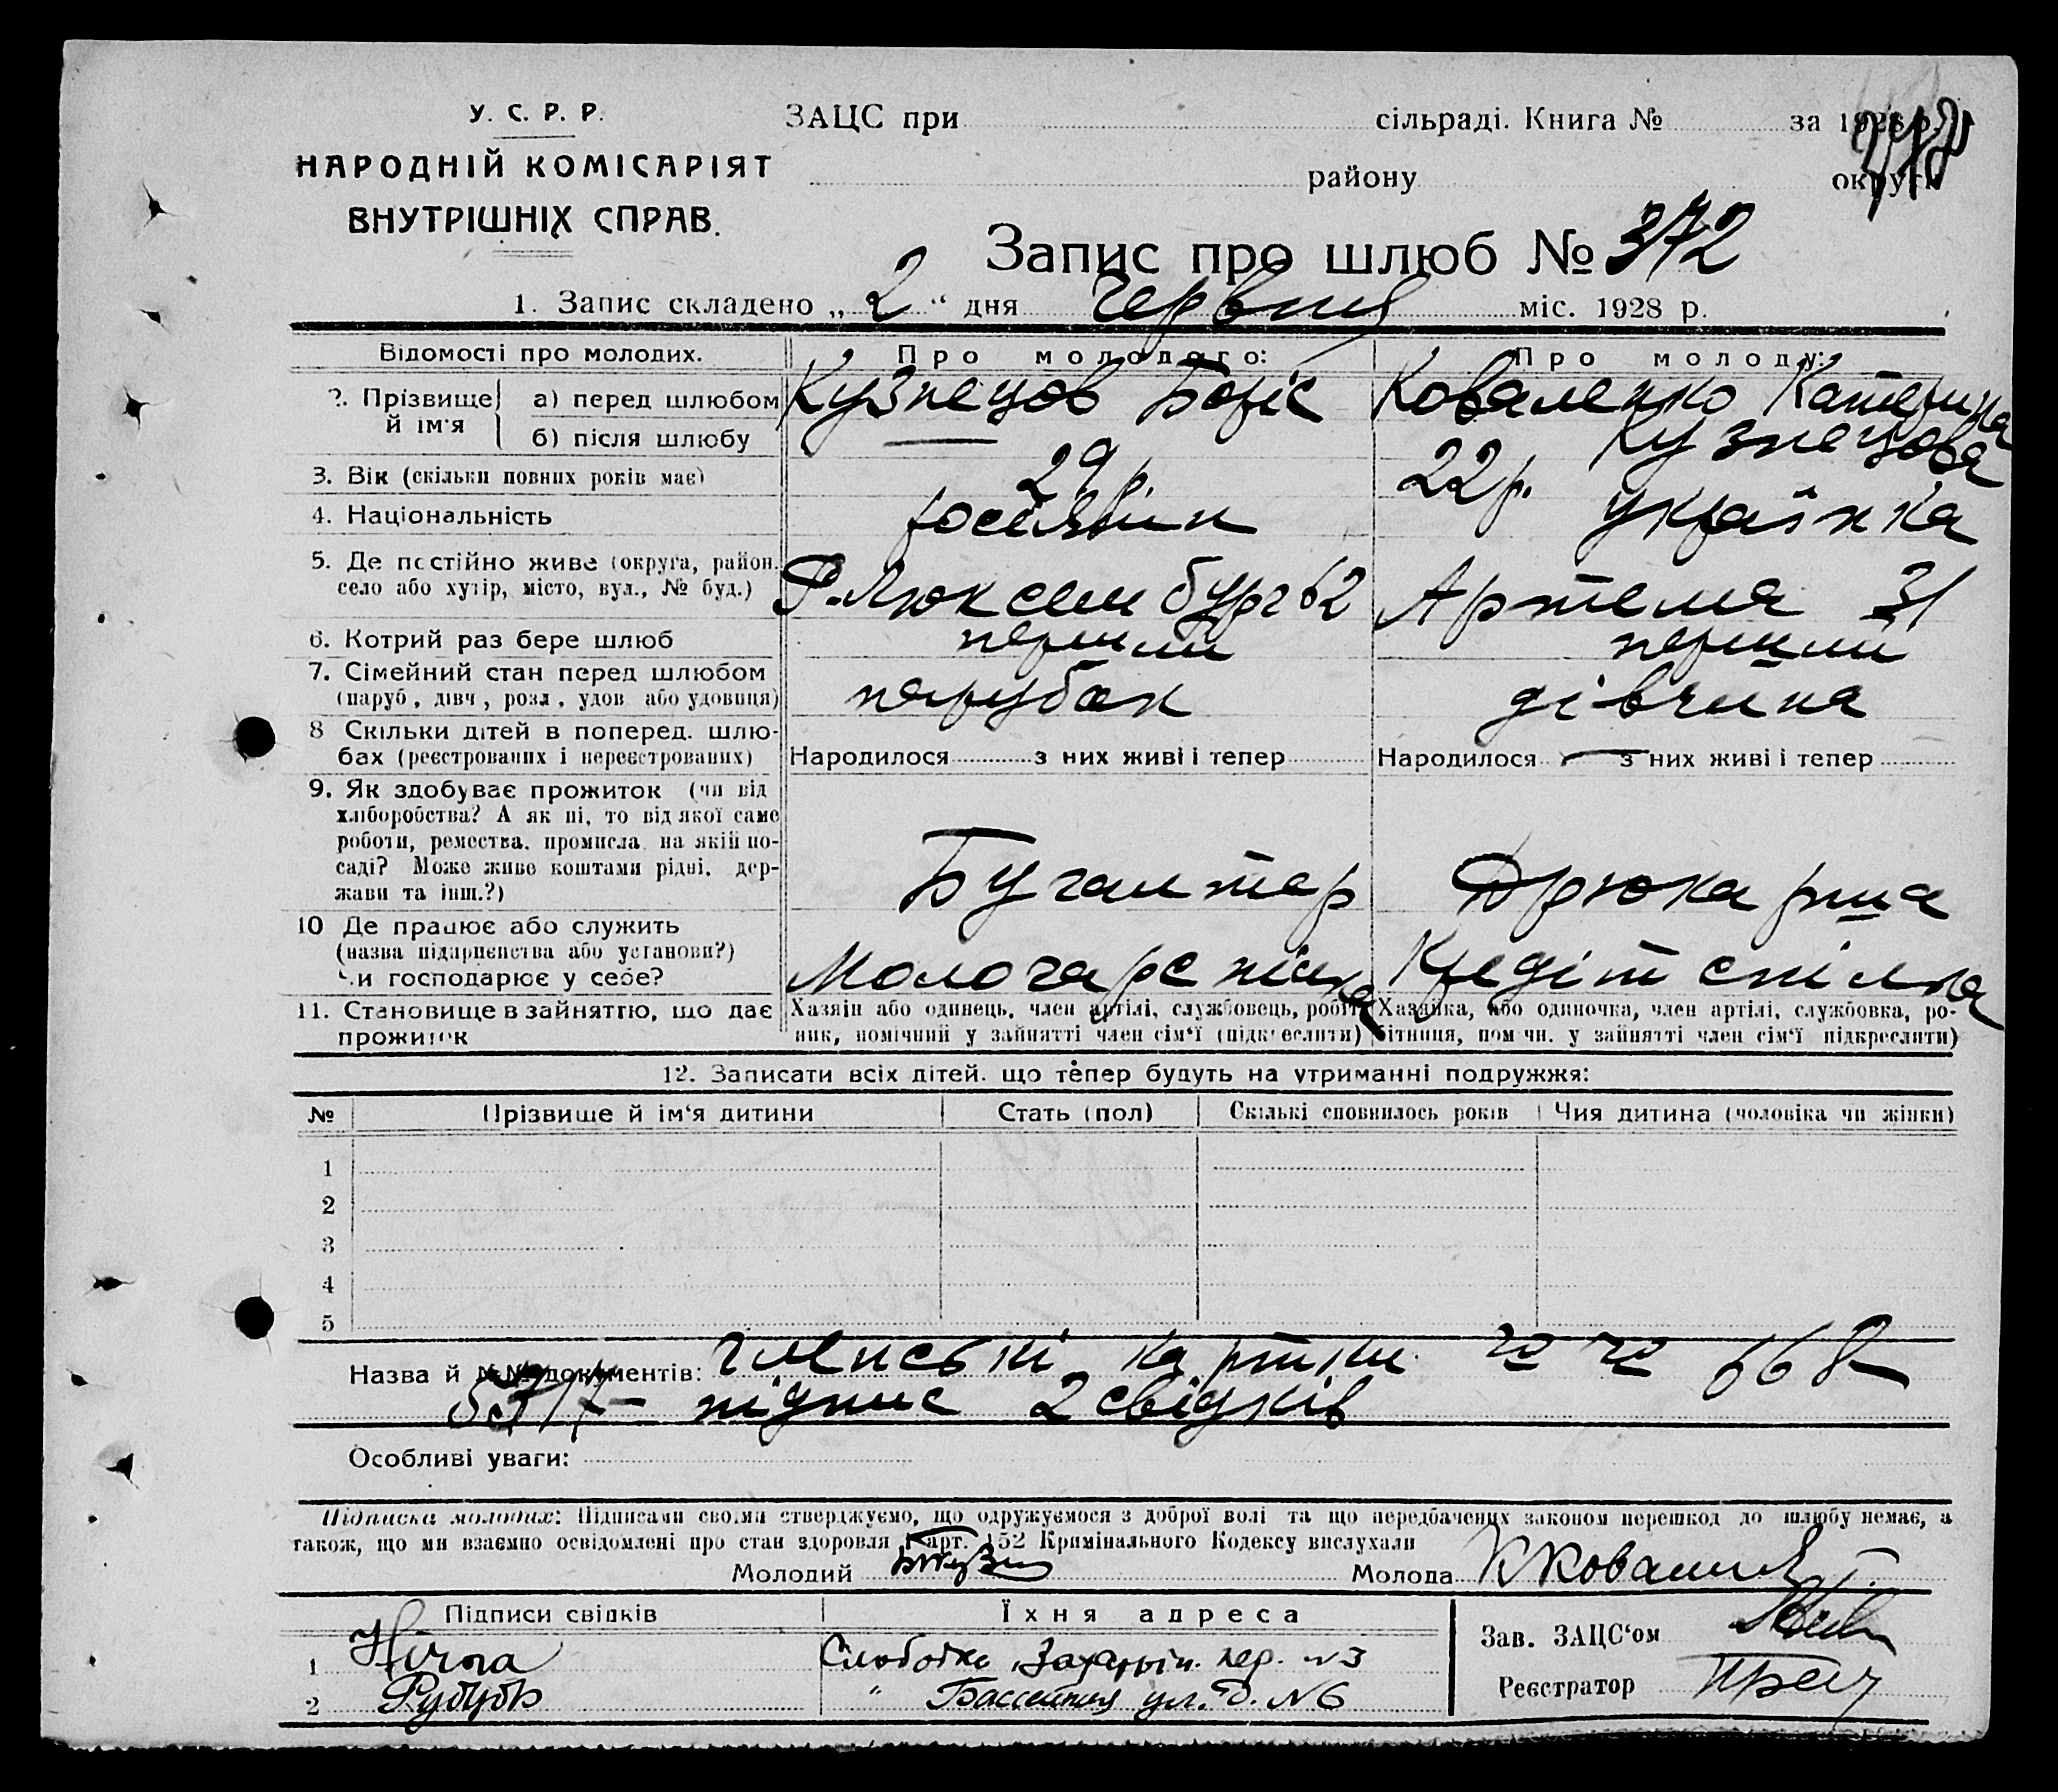 У. С. Р. Р.
НАРОДНІЙ КОМІСАРІЯТ
ВНУТРІШНІХ СПРАВ.
ЗАЦС при сільраді. Книга № за 1928 р.
району округи
Запис про шлюб № 372
1. Запис складено „ 2 “ дня Червня міс. 1928 р.
Відомості про молодих. Про молодого: Про молоду:
2. Прізвище й ім'я а) перед шлюбом Кузнецов Боріс Коваленко Катерина
б) після шлюбу — Кузнецова
3. Вік (скільки повних років має) 29 р. 22 р.
4. Національність росіянин українка
5. Де постійно живе (округа, район, село або хутір, місто, вул., № буд.) Р. Люксембург 62 Артема 31
6. Котрий раз бере шлюб перший перший
7. Сімейний стан перед шлюбом
(паруб, дівч, розл, удов або удовиця) парубок дівчина
8 Скільки дітей в поперед. шлюбах (реєстрованих і нереєстрованих) Народилося з них живі і тепер Народилося — з них живі і тепер
9. Як здобуває прожиток (чи від
хліборобства? А як ні, то від якої саме
роботи, ремества, промисла, на якій посаді? Може живе коштами рідні, держави та інш.?) Бугалтер Дрюкарша
10 Де працює або служить
(назва підприємства або установи?)
Чи господарює у себе? Молочарспілка Кредітспілка
11. Становище в зайняттю, що дає
прожиток
Хазяїн або одинець, член артілі, службовець, робітник, помічний у зайнятті член сім'ї (підкреслити)
Хазяйка, або одиночка, член артілі, службовка, робітниця, помічн. у зайнятті член сім'ї підкреслити)
12. Записати всіх дітей, що тепер будуть на утриманні подружжя:
№ Прізвище й ім'я дитини Стать (пол) Скількі сповнилось років Чия дитина (чоловіка чи жінки)
1
2
3
4
5
Назва й №№ документів: членські картки №№ 668
підпис 2 свідків
Особливі уваги:
Підписка молодих: Підписами своїми стверджуємо, що одружуємося з доброї волі та що передбачених законом перешкод до шлюбу немає, а
також, що ми взаємно освідомлені про стан здоровля й арт. 152 Кримінального Кодексу вислухали
Молодий Молода
Підписи свідків Їхня адреса
1 Слободка, пер. N 3
2 Рубцов " Бассейная ул. д. N 6
Зав. ЗАЦС'ом
Реєстратор